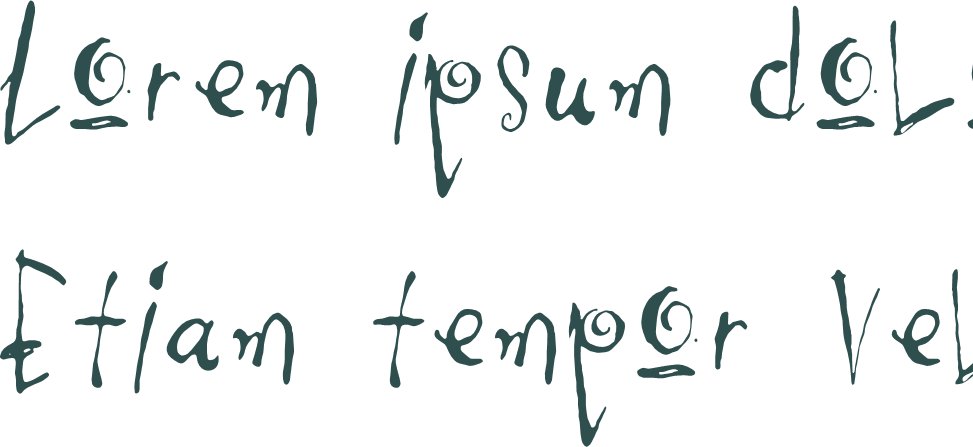 Lorem ipsum dol
Etiam tempor vel